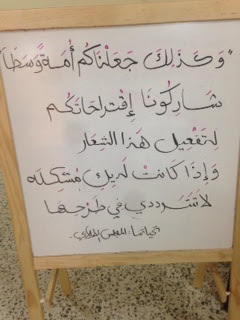 "وَكَذَلِكَ جَعَلْنَاكُم أُمَةً وَسَطًا"
شَارِكُونَا إِقْتِرَاحَاتَكُم
لِتَفْعِيلِ هَذَا الشِعَار
وَإِذَا كَانَتْ لَديكِ مُشكِلَه
لاَ تَتَرددي فِي طَرحِهَا
تحياتنا: